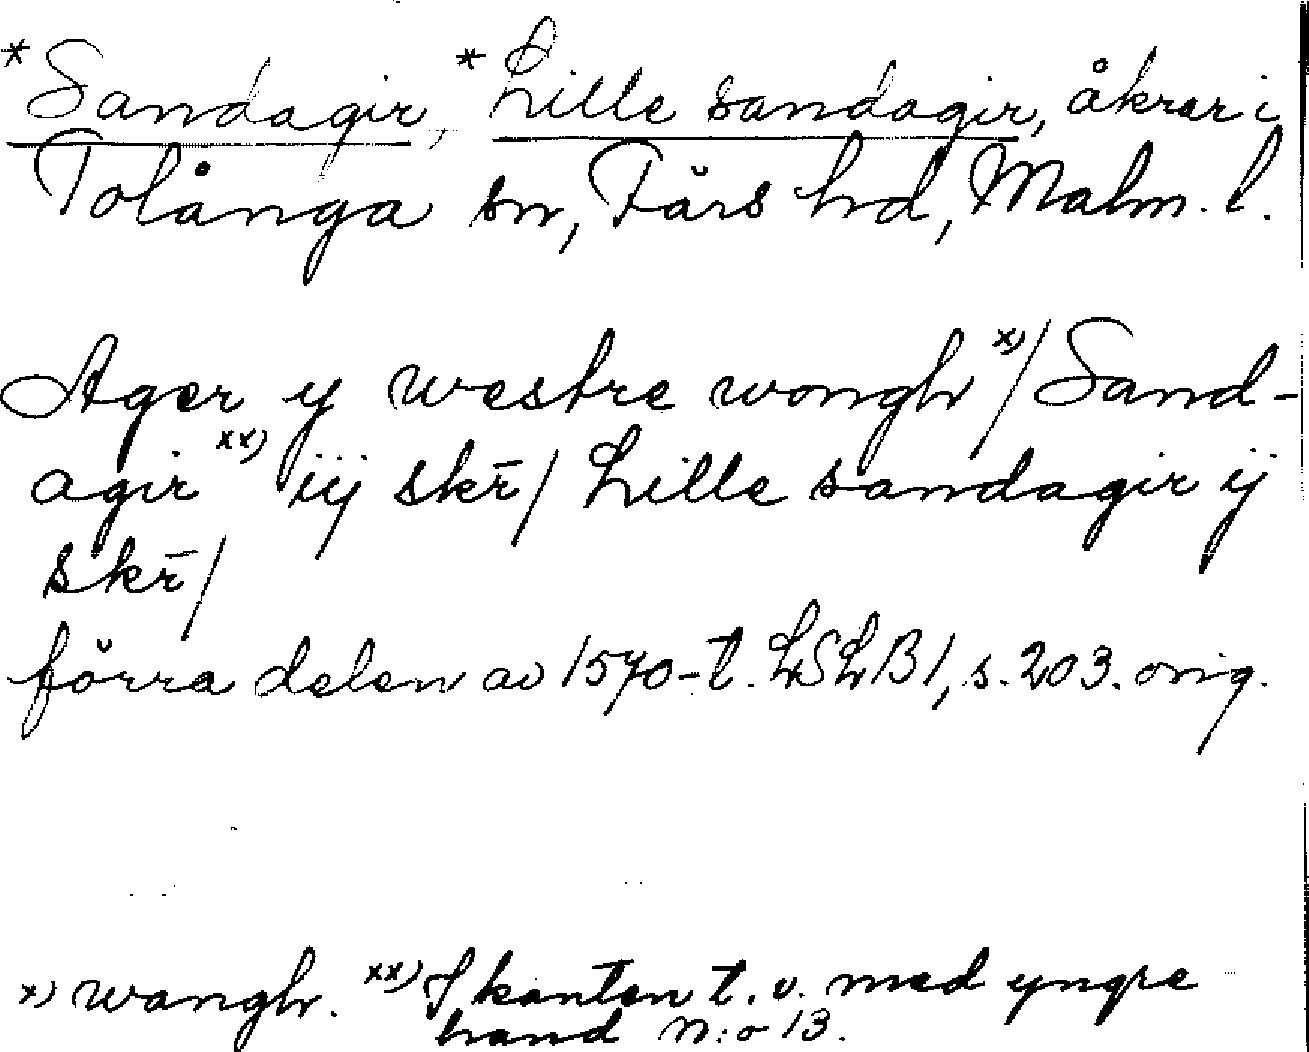 *Sandagir, *Lille sandagir, åkrar i
Tolånga sn, Färs hd, Malm. l.
Ager y westre wongh x)/ Sand-
agir xx) iij skr̄/ Lille sandagir ij
skr̄/
förra delen av 1570-t. LSLB1, s. 203. orig.
x) wangh. xx) I kanten t. v. med yngre
hand N:o 13.